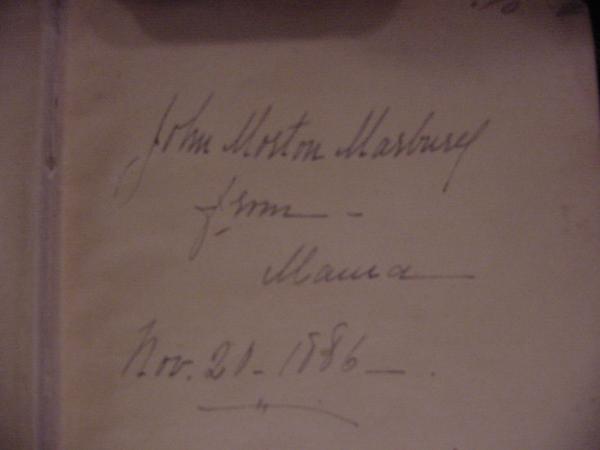 John Morton Marbury
from -
Mama
Nov. 20 - 1886 - .